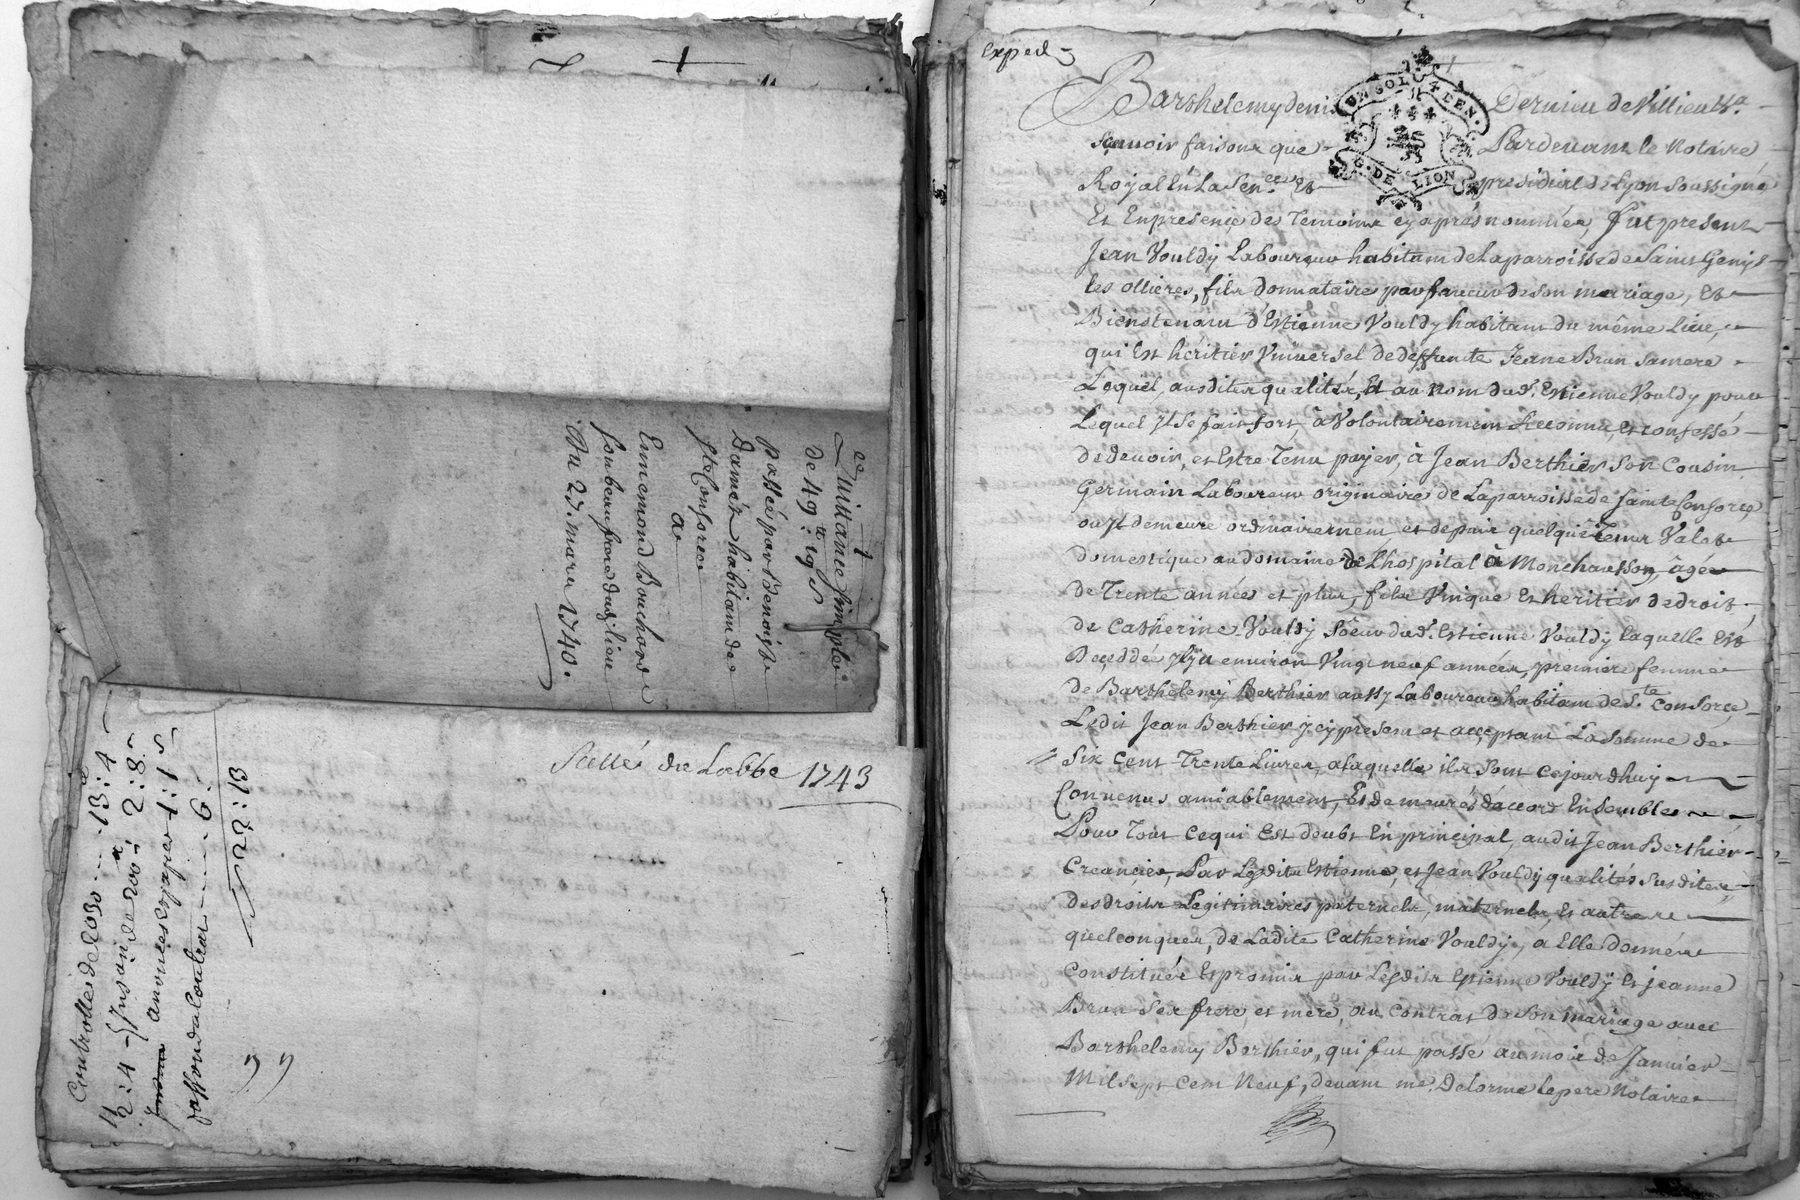 Quittance simple
de 49ᵗᵗ 19 s
passée par Benoist
Damét habitant de
Ste Consorce
a
Ennemond Bouchard
son beau frere dud. lieu
Du 23. mars 1740.
Scellé de Labbe 1743
Controlle de 2030 13:4
2:4 Insaine de 200ᵗᵗ 2:8
anvoices papier 1:1
fasson da Contrat 6:
22:13
Exped
Barthelemy Denis Dervieu de Villieu &ᵃ
Sçavoir faisons que Pardevant le Notaire
Royal En La Senᶜᵉᵉ Et presidial de Lyon Soussigné
Et En presence des Temoins cy après nommés, fut present
Jean Vouldy Laboureur habitant de La parroisse de Saint Genis
les ollieres, fils donnataire par faveur de son mariage, Et
Bienstenant d'Estienne Vouldy habitant du même Lieu,
qui Est héritier Universel de deffunte Jeane Brun sa mere
Lequel, ausdites qualités, Et au nom dud. Estienne Vouldy pour
Lequel Il Se fait fort, à Volontairement Reconnu, et confessé
de devoir, et Estre Tenu payer, à Jean Berthier Son Cousin
Germain Laboureur originaire de La parroisse de Sainte Consorce
ou Il demeure ordinairement, et depuis quelque Tems Valet
domestique au domaine de L'hospital à Monchausson, âgé
de Trente années et plus, fils Unique Et heritier de droit
de Catherine Vouldy Sœur dud. Estienne Vouldy laquelle Est
Deceddé Il y a environ Vingt neuf années, premiere femme
de Barthelemy Berthier aussy Laboureur habitant de Sᵗᵉ Consorce,
Ledit Jean Berthier Icy present et acceptant La Somme de
Six Cent Trente Livres, a laquelle ils Sont cejourdhuy
Convenus amiablement, Et demeurés d'accord Ensembles
Pour Tout ce qui Est deubt En principal, audit Jean Berthier
Creancier, Par Lesdits Estienne, et Jean Vouldy qualités susdites,
des droits Legitimaires paternels, maternels, Et autres
quelconques, de Ladite Catherine Vouldy, a Elle donnés
Constitués Et promis par Lesdits Estienne Vouldy Et Jeanne
Brun Ses frere, et mere, au Contrat de Son mariage avec
Barthelemy Berthier, qui fut passé au mois de Janvier
Mil Sept Cent Neuf, devant me Delorme le pere Notaire
UN SOL 4 DEN.
G. DE LION